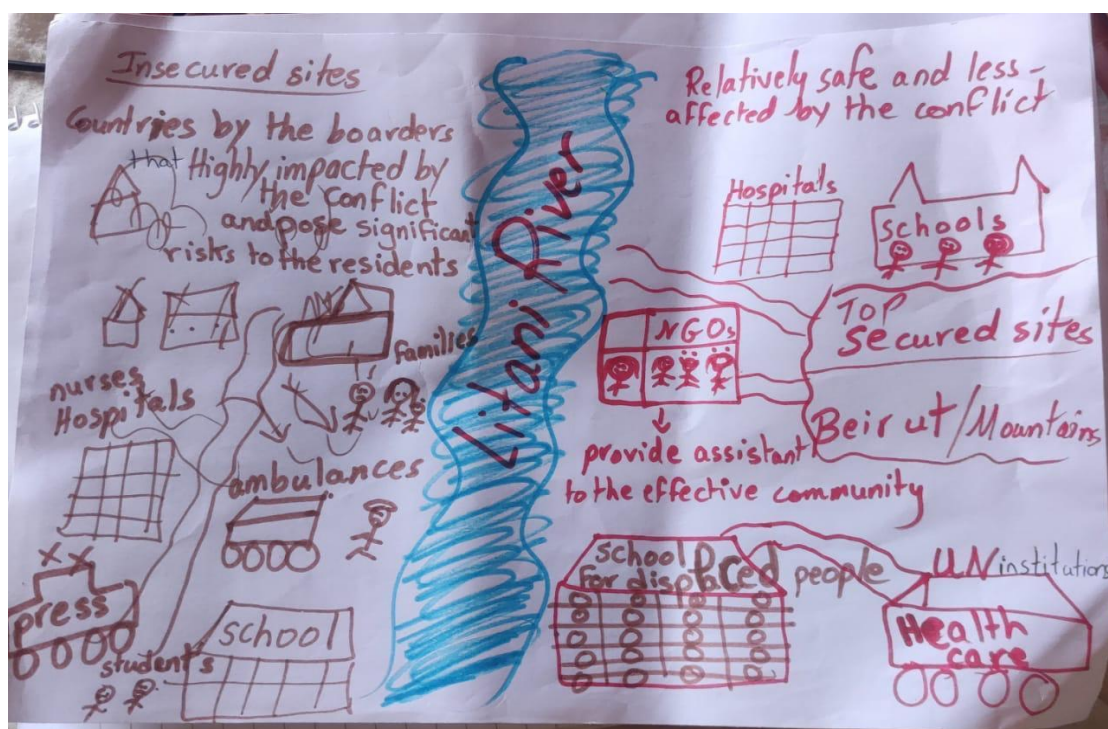 Insecured sites
Countries by the boarders
that Highly impacted by
the conflict
and pose significant
risks to the residents
families
nurses
Hospitals
ambulances
press
students
school
Litani River
Relatively safe and less-
affected by the conflict
Hospitals
Schools
NGOs
Top
Secured sites
Beirut/Mountains
provide assistant
to the effective community
school
For displaced people
UN institutions
Health
care